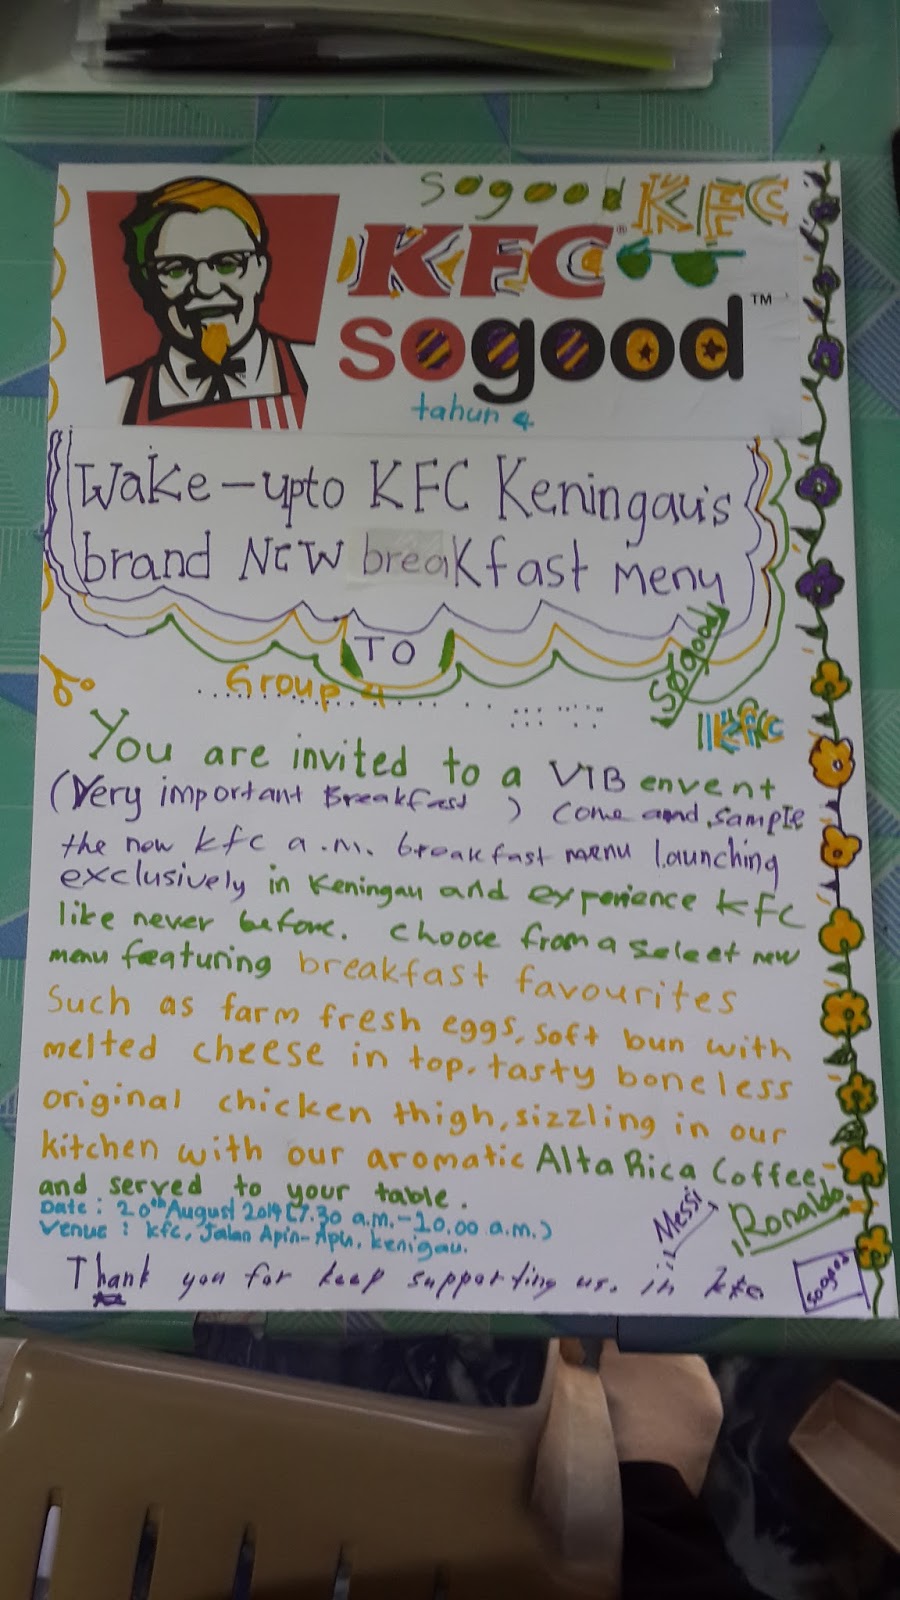 sogood KFC
KFC®
sogood™
tahun 4
Wake-upto KFC Keningau's
brand New breakfast menu
TO
Group 4
Sogood
kfc
You are invited to a VIB envent
(Very important Breakfast ) come and sample
the new kfc a.m. breakfast menu launching
exclusively in Keningau and experience kfc
like never before. choose from a select new
menu featuring breakfast favourites
Such as farm fresh eggs, soft bun with
melted cheese in top. tasty boneless
original chicken thigh, sizzling in our
kitchen with our aromatic Alta Rica Coffee
and served to your table.
Date : 20th August 2014 (7.30 a.m.-10.00 a.m.)
Venue : kfc, Jalan Apin-Apin, kenigau.
Messi
Ronaldo
Thank you for keep supporting us. in kfc
sogood